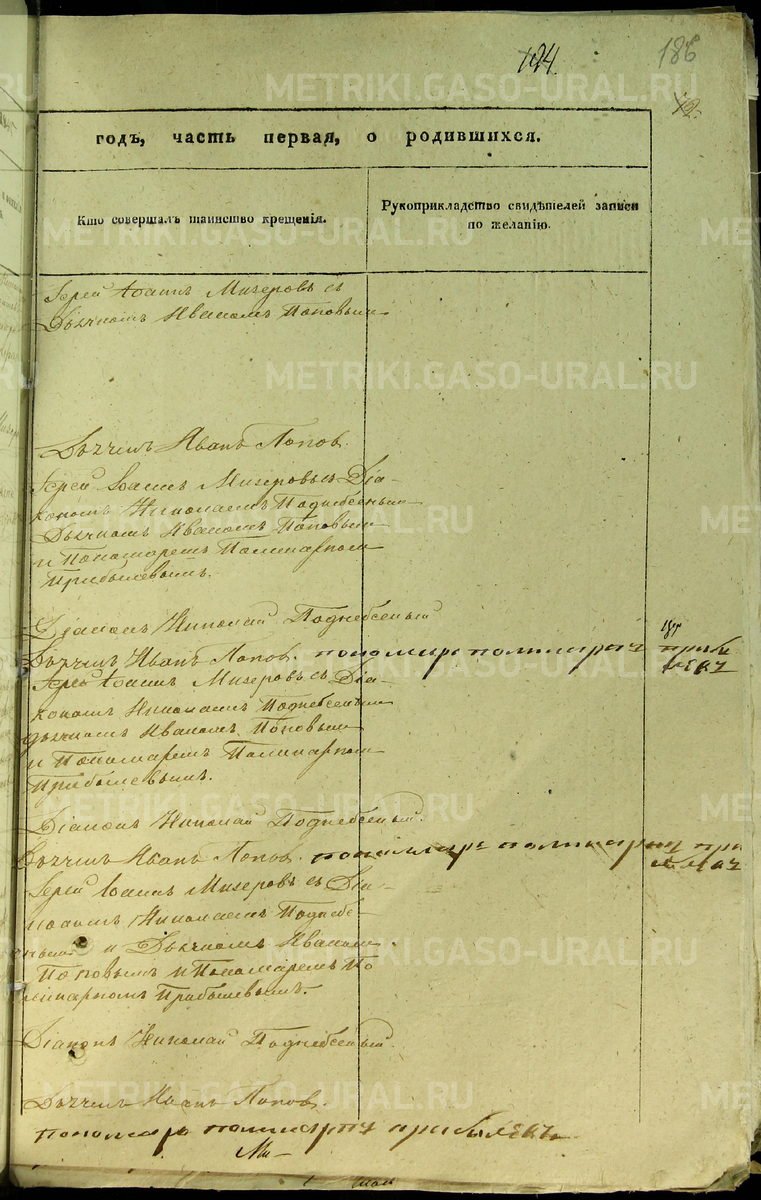 186
годъ, часть первая, о родившихся.
Кто совершалъ таинство крещенія.
Рукоприкладство свидѣтелей записи
по желанію.
Іерей Іоаннъ Мизеровъ съ
Дьячкомъ Иваномъ Поповымъ
Дьячекъ Иванъ Попов.
Іерей Іоаннъ Мизеровъ съ Діа-
кономъ Николаемъ Поднебеснымъ
Дьячкомъ Иваномъ Поповымъ
и Пономаремъ Полинарпомъ
Прибылевымъ.
Діаконъ Николай Поднебесный
Дьячекъ Иванъ Попов. пономарь
Іерей Іоаннъ Мизеровъ съ Діа-
кономъ Николаемъ Поднебеснымъ
дьячкомъ Иваномъ Поповымъ
и Пономаремъ Полинарпомъ
Прибылевымъ.
Діаконъ Николай Поднебесный.
Дьячекъ Иванъ Попов. пономарь
Іерей Іоаннъ Мизеровъ съ Діа-
кономъ Николаемъ Поднебе-
и Дьячкомъ Иваномъ
Поповымъ и Пономаремъ По
линарпомъ Прибылевымъ.
Діаконъ Николай Поднебесный.
Дьячекъ Иванъ Попов.
пономарь
METRIKI.GASO-URAL.RU